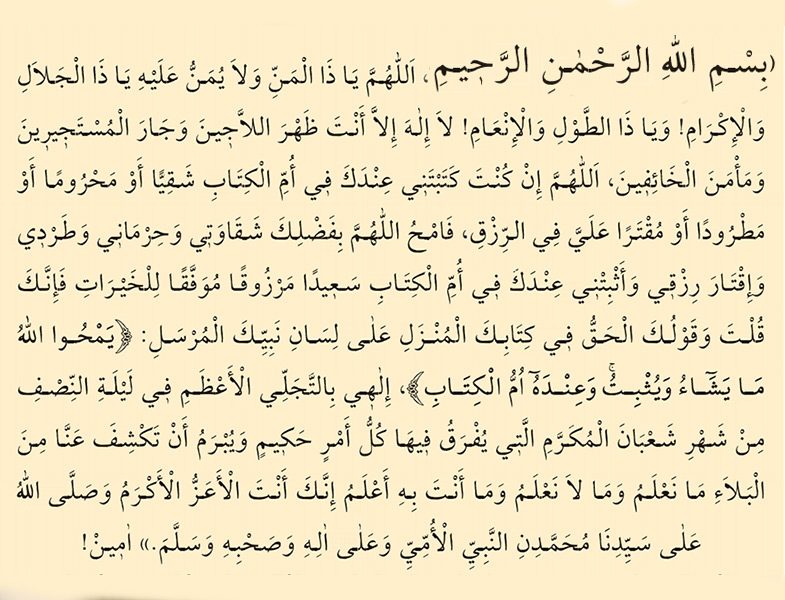 (بِسْمِ اللّٰهِ الرَّحْمٰنِ الرَّحِيمِ، اَللّٰهُمَّ يَا ذَا الْمَنِّ وَلاَ يُمَنُّ عَلَيْهِ يَا ذَا الْجَلاَلِ
وَالْإِكْرَامِ! وَيَا ذَا الطَّوْلِ وَالْإِنْعَامِ! لاَ إِلٰهَ إِلاَّ أَنْتَ ظَهْرَ اللاَّجِينَ وَجَارَ الْمُسْتَجِيرِينَ
وَمَأْمَنَ الْخَائِفِينَ، اَللّٰهُمَّ إِنْ كُنْتَ كَتَبْتَنِي عِنْدَكَ فِي أُمِّ الْكِتَابِ شَقِيًّا أَوْ مَحْرُومًا أَوْ
مَطْرُودًا أَوْ مُقْتَرًا عَلَيَّ فِي الرِّزْقِ، فَامْحُ اللّٰهُمَّ بِفَضْلِكَ شَقَاوَتِي وَحِرْمَانِي وَطَرْدِي
وَإِقْتَارَ رِزْقِي وَأَثْبِتْنِي عِنْدَكَ فِي أُمِّ الْكِتَابِ سَعِيدًا مَرْزُوقًا مُوَفَّقًا لِلْخَيْرَاتِ فَإِنَّكَ
قُلْتَ وَقَوْلُكَ الْحَقُّ فِي كِتَابِكَ الْمُنْزَلِ عَلٰى لِسَانِ نَبِيِّكَ الْمُرْسَلِ: ﴿يَمْحُوا اللّٰهُ
مَا يَشَٓاءُ وَيُثْبِتُۚ وَعِنْدَهُٓ اُمُّ الْكِتَابِ﴾، إِلٰهِي بِالتَّجَلِّي الْأَعْظَمِ فِي لَيْلَةِ النِّصْفِ
مِنْ شَهْرِ شَعْبَانَ الْمُكَرَّمِ الَّتِي يُفْرَقُ فِيهَا كُلُّ أَمْرٍ حَكِيمٍ وَيُبْرَمُ أَنْ تَكْشِفَ عَنَّا مِنَ
الْبَلاَءِ مَا نَعْلَمُ وَمَا لاَ نَعْلَمُ وَمَا أَنْتَ بِهِ أَعْلَمُ إِنَّكَ أَنْتَ الْأَعَزُّ الْأَكْرَمُ وَصَلَّى اللّٰهُ
عَلٰى سَيِّدِنَا مُحَمَّدٍنِ النَّبِيِّ الْأُمِّيِّ وَعَلٰى اٰلِهِ وَصَحْبِهِ وَسَلَّمَ.» اٰمِينْ!